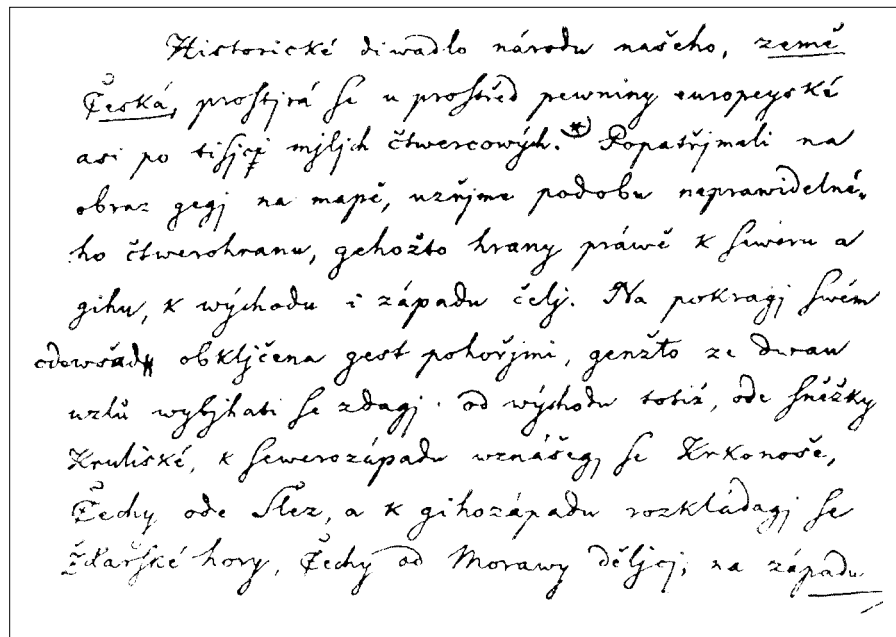 Historické diwadlo národu našeho, země
Česká, prostjrá se u prostřed pewniny europegské
asi po tisjcj mjljch čtwercowých.*) Popatřjmeli na
obraz gegj na mapě, uzřjme podobu neprawidelné-
ho čtwerohranu, gehožto hrany práwě k seweru a
gihu, k wýchodu i západu čelj. Na pokragj swém
odewšad obkljčena gest pohořjmi, genžto ze dwau
uzlů wybjhati se zdagj. od wýchodu totiž, ode sněžky
Krulické, k sewerozápadu wznášegj se Krkonoše,
Čechy ode Slez, a k gihozápadu rozkládagj se
Žďarské hory, Čechy od Morawy děljcj; na západu